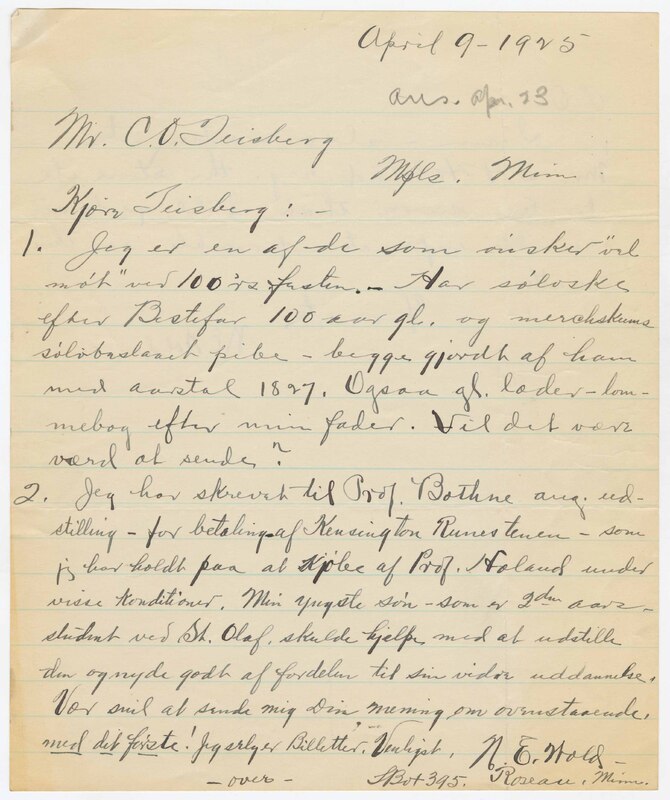 April 9 - 1925
ans. Apr. 23
Mr. C.O. Teisberg
Mpls. Minn.
Kjære Teisberg: -
1. Jeg er en af de som ønsker "vel
møt" ved 100 års festen. - Har søløske
efter Bestefar 100 aar gl. og merchskums
sølvbeslaaet pibe - begge gjordt af ham
med aarstal 1827. Ogsaa gl. læder-lom-
mebog efter min fader. Vil det være
værd at sende?
2. Jeg har skrevet til Prof. Bothne ang. ud-
stilling - for betaling af Kensington Runestenen - som
jeg har holdt paa at kjøbe af Prof. Holand under
visse Konditioner. Min yngste søn - som er 2den aars-
student ved St. Olaf, skulde hjelpe med at udstille
den og nyde godt af fordelen til sin vidre uddannelse.
Vær snil at sende mig Din mening om ovenstaaende,
med det første! Jeg sælger Billetter. Venligst,
N. E. Wold -
- over -
Box 395. Roseau, Minn.